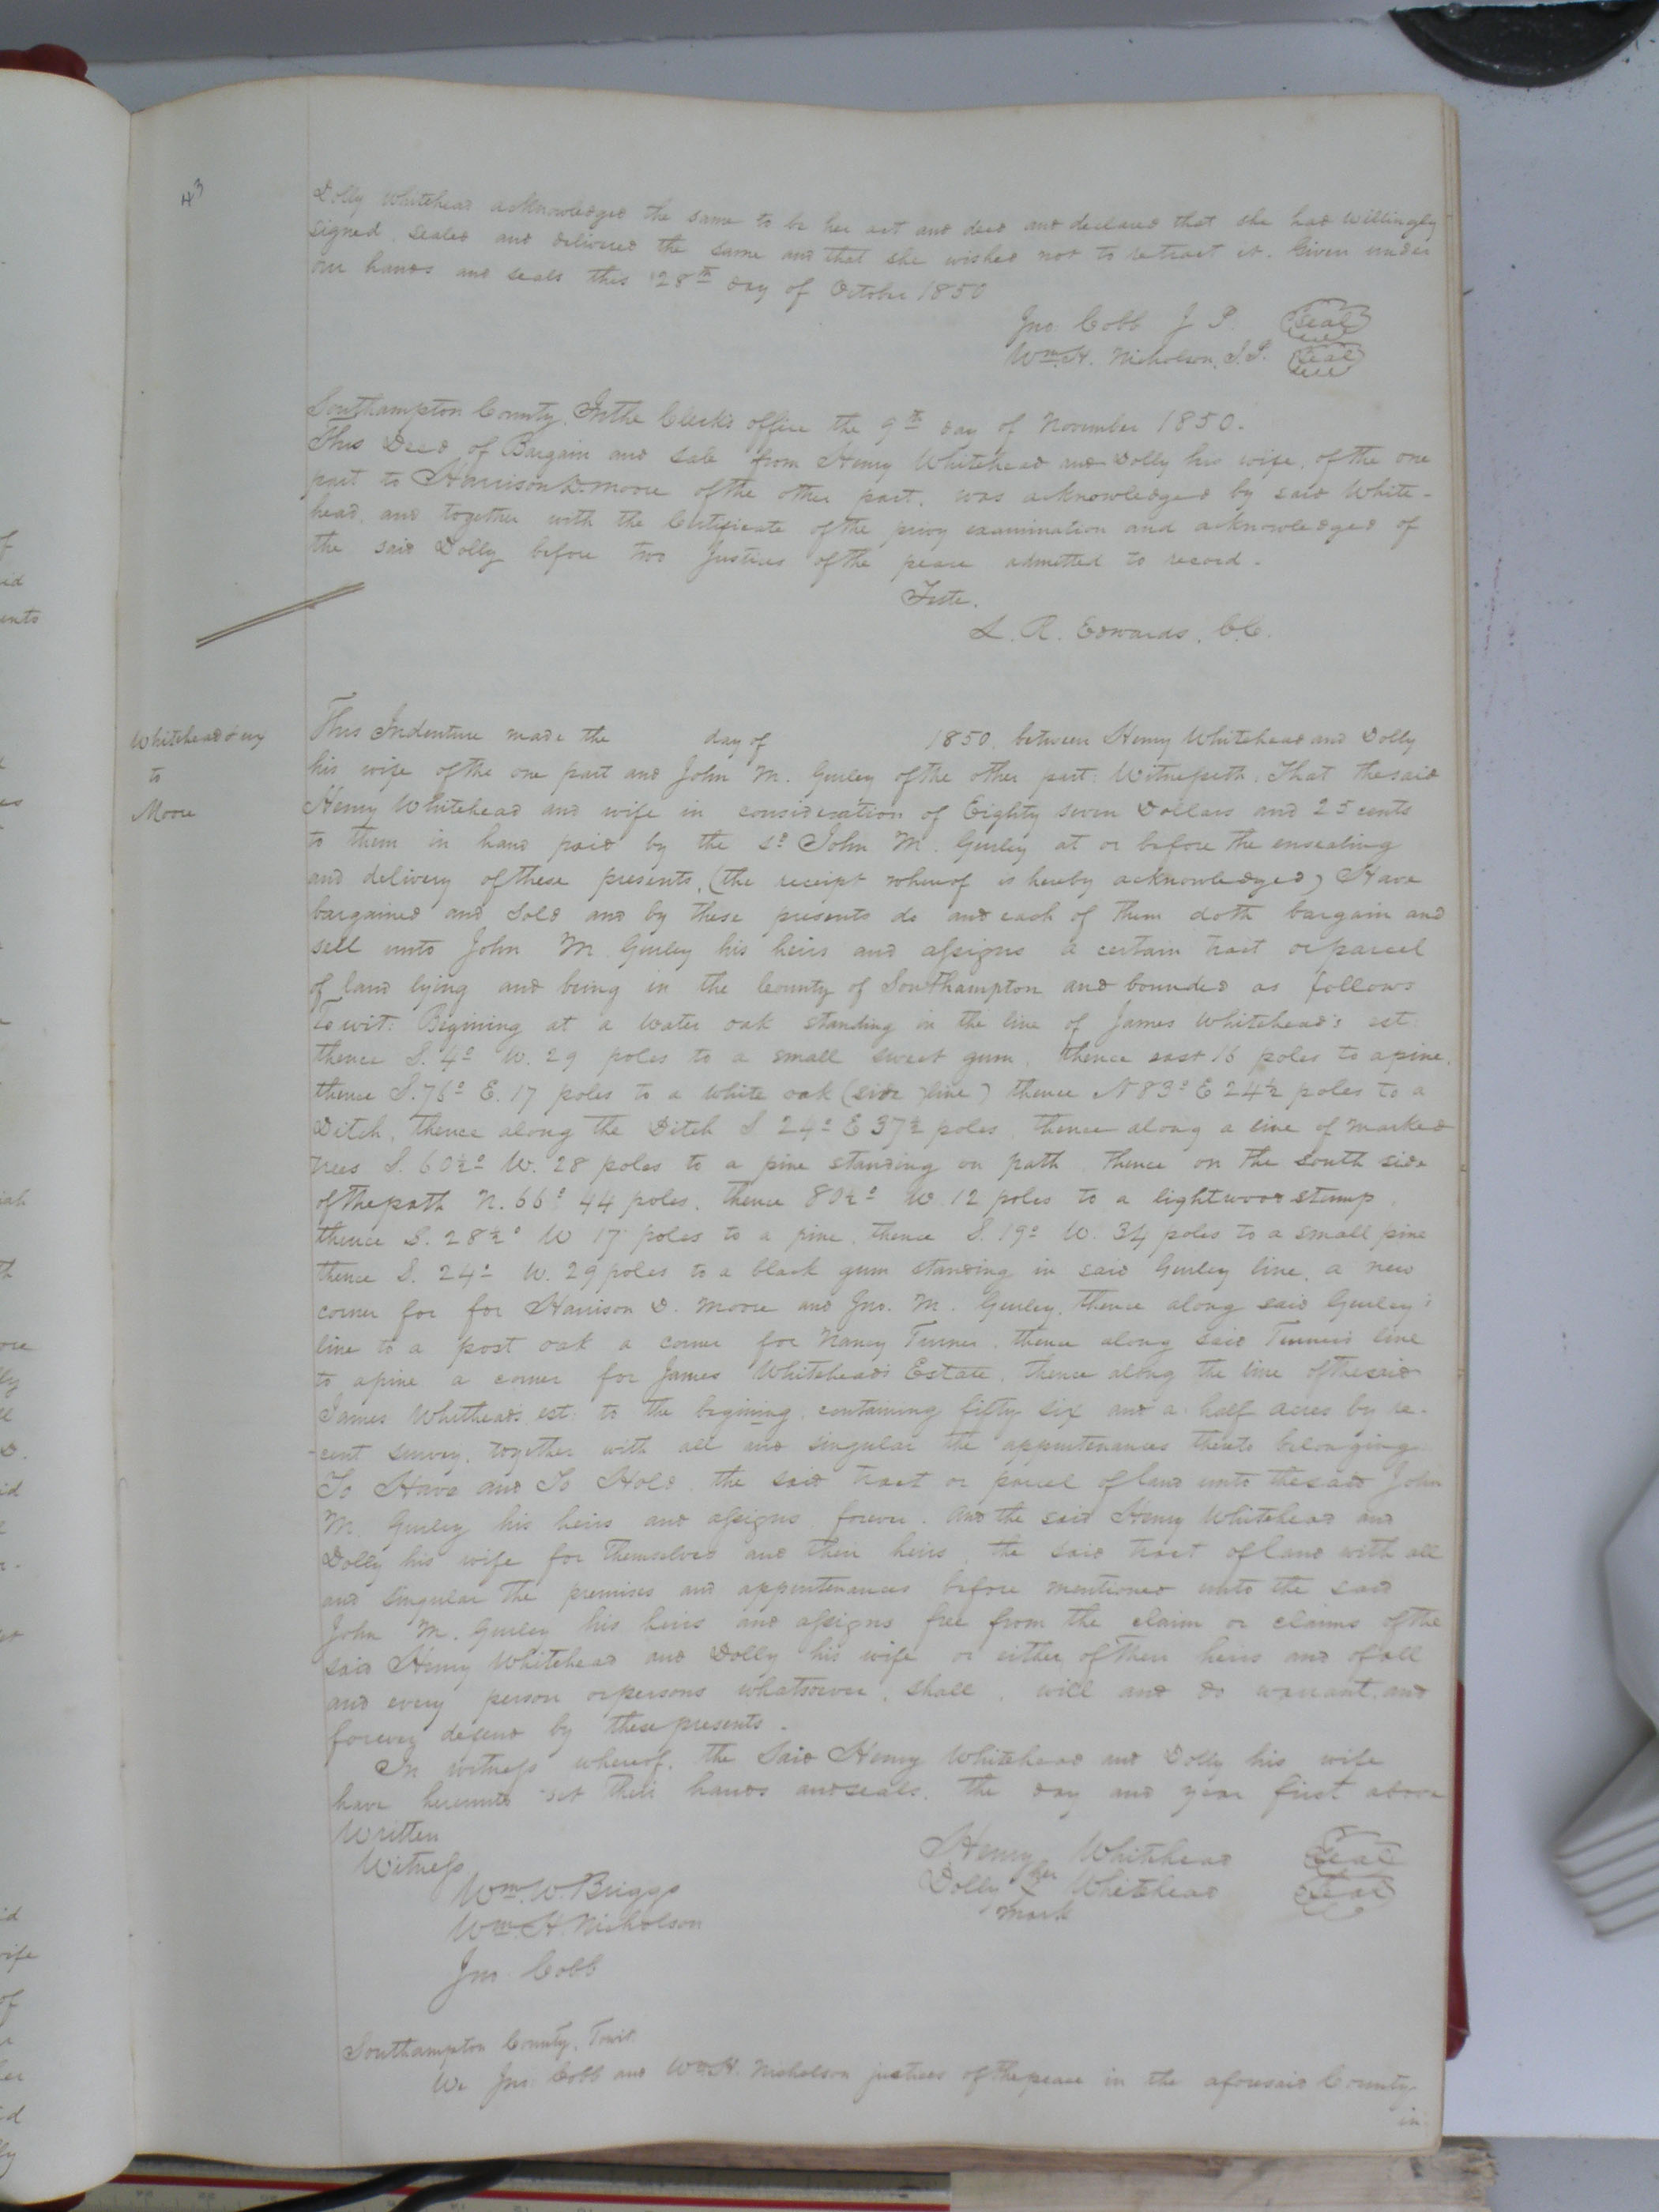 43
Dolly Whitehead acknowledged the same to be her act and deed and declared that she had willingly
signed, sealed and delivered the same and that she wished not to retract it. Given under
our hands and seals this 28th day of October 1850
Jno Cobb J P. Seal
Wm. H. Nicholson, J.P. Seal
Southampton County, In the Clerk's office the 9th day of November 1850.
This Deed of Bargain and sale from Henry Whitehead and Dolly his wife, of the one
part to Harrison D. Moore of the other part, was acknowledged by said White-
head, and together with the Certificate of the privy examination and acknowledged of
the said Dolly before two Justices of the peace admitted to record.
Teste.
L. R. Edwards, C.C.
Whitehead & ux
to
Moore
This Indenture made the day of 1850, between Henry Whitehead and Dolly
his wife of the one part and John M. Gurley of the other part: Witnesseth, That the said
Henry Whitehead and wife in consideration of Eighty seven Dollars and 25 cents
to them in hand paid by the sd John M. Gurley at or before the ensealing
and delivery of these presents, (the receipt whereof is hereby acknowledged) Have
bargained and Sold and by these presents do and each of them doth bargain and
sell unto John M. Gurley his heirs and assigns a certain tract or parcel
of land lying and being in the County of Southampton and bounded as follows
To wit: Begining at a Water oak standing in the line of James Whitehead's est:
thence S. 4° W. 29 poles to a small sweet gum, thence east 16 poles to a pine,
thence S. 76° E. 17 poles to a white oak (side line) thence N 83° E 24½ poles to a
Ditch, thence along the Ditch S 24° E 37½ poles, thence along a line of marked
trees S. 60½° W. 28 poles to a pine standing on path, thence on the South side
of the path N. 66° 44 poles, thence 80½° W 12 poles to a lightwood stump,
thence S. 28½° W 17 poles to a pine, thence S. 19° W. 34 poles to a small pine
thence S. 24° W. 29 poles to a black gum standing in said Gurley line, a new
corner for for Harrison D. Moore and Jno. M. Gurley, thence along said Gurley's
line to a post oak a corner for Nancy Turner, thence along said Turner's line
to a pine a corner for James Whitehead's Estate, thence along the line of the said
James Whithead's est: to the begining, containing fifty six and a half acres by re-
-cent survey, together with all and singular the appurtenances thereto belonging
To Have and To Hold, the said tract or parcel of land unto the said John
M. Gurley his heirs and assigns forever. And the said Henry Whitehead and
Dolly his wife for themselves and their heirs, the said tract of land with all
and singular the premises and appurtenances before mentioned unto the said
John M. Gurley his heirs and assigns free from the claim or claims of the
said Henry Whitehead and Dolly his wife or either of their heirs and of all
and every person or persons whatsoever, shall, will and do warrant, and
forever defend by these presents.
In witness whereof, the Said Henry Whitehead and Dolly his wife
have hereunto set their hands and seals, the day and year first above
Written
Witness
Wm. V. Briggs
Wm. H. Nicholson
Jno. Cobb
Henry Whitehead Seal
her
Dolly X Whitehead Seal
mark
Southampton County, Towit:
We Jno: Cobb and Wm H. Nicholson justices of the peace in the aforesaid County
in